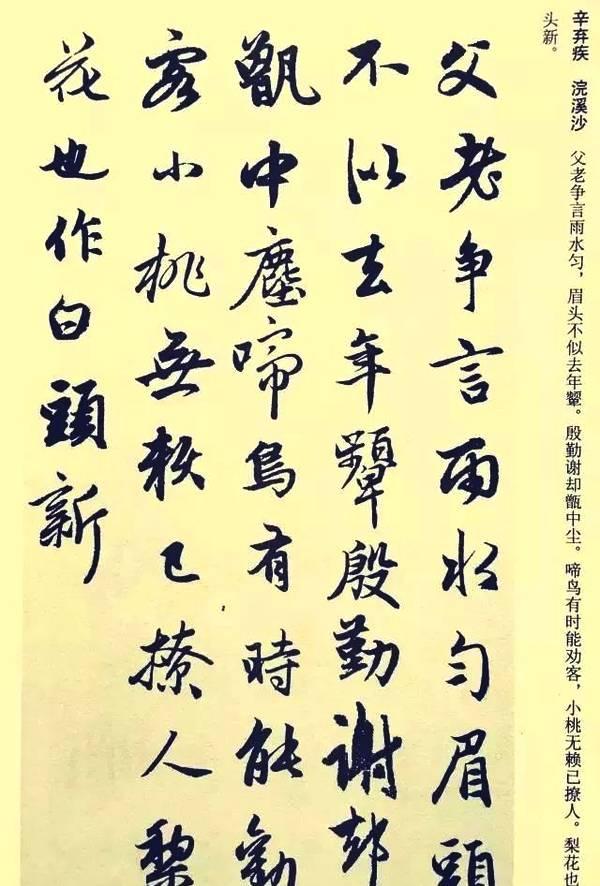 辛弃疾 浣溪沙 父老争言雨水匀，眉头不似去年颦。殷勤谢却甑中尘。 啼鸟有时能劝客，小桃无赖已撩人。梨花也
头新。
父老争言雨水匀眉頭
不似去年顰殷勤謝却
甑中塵啼鳥有時能勸
客小桃無賴已撩人梨
花也作白頭新